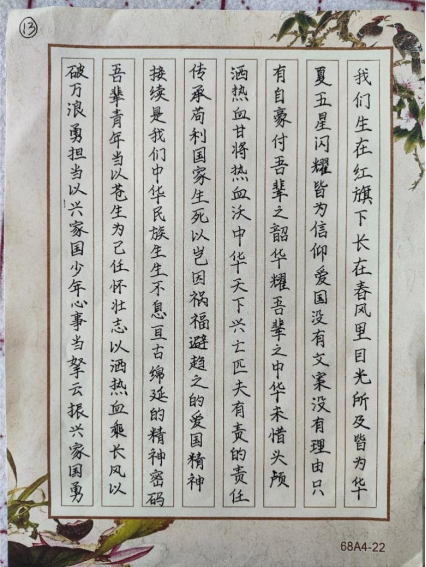 我们生在红旗下长在春风里目光所及皆为华
夏五星闪耀皆为信仰爱国没有文案没有理由只
有自豪付吾辈之韶华耀吾辈之中华未惜头颅
洒热血甘将热血沃中华天下兴亡匹夫有责的责任
传承苟利国家生死以岂因祸福避趋之的爱国精神
接续是我们中华民族生生不息亘古绵延的精神密码
吾辈青年当以苍生为己任怀壮志以洒热血乘长风以
破万浪勇担当以兴家国少年心事当拏云振兴家国勇
13
68A4-22